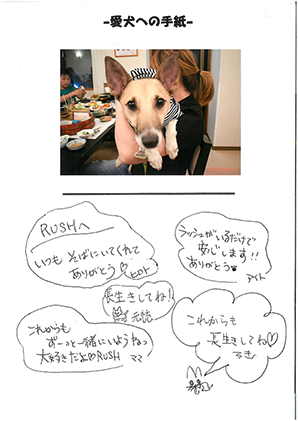 -愛犬への手紙-
RUSHへ
いつもそばにいてくれて
ありがとう♡ ヒロト
ラッシュがいるだけで
安心します!!
ありがとう
アイト
長生きしてね!
これからも
ずーっと一緒にいようねっ
大好きだよ♡RUSH ママ
これからも
長生きしてね♡